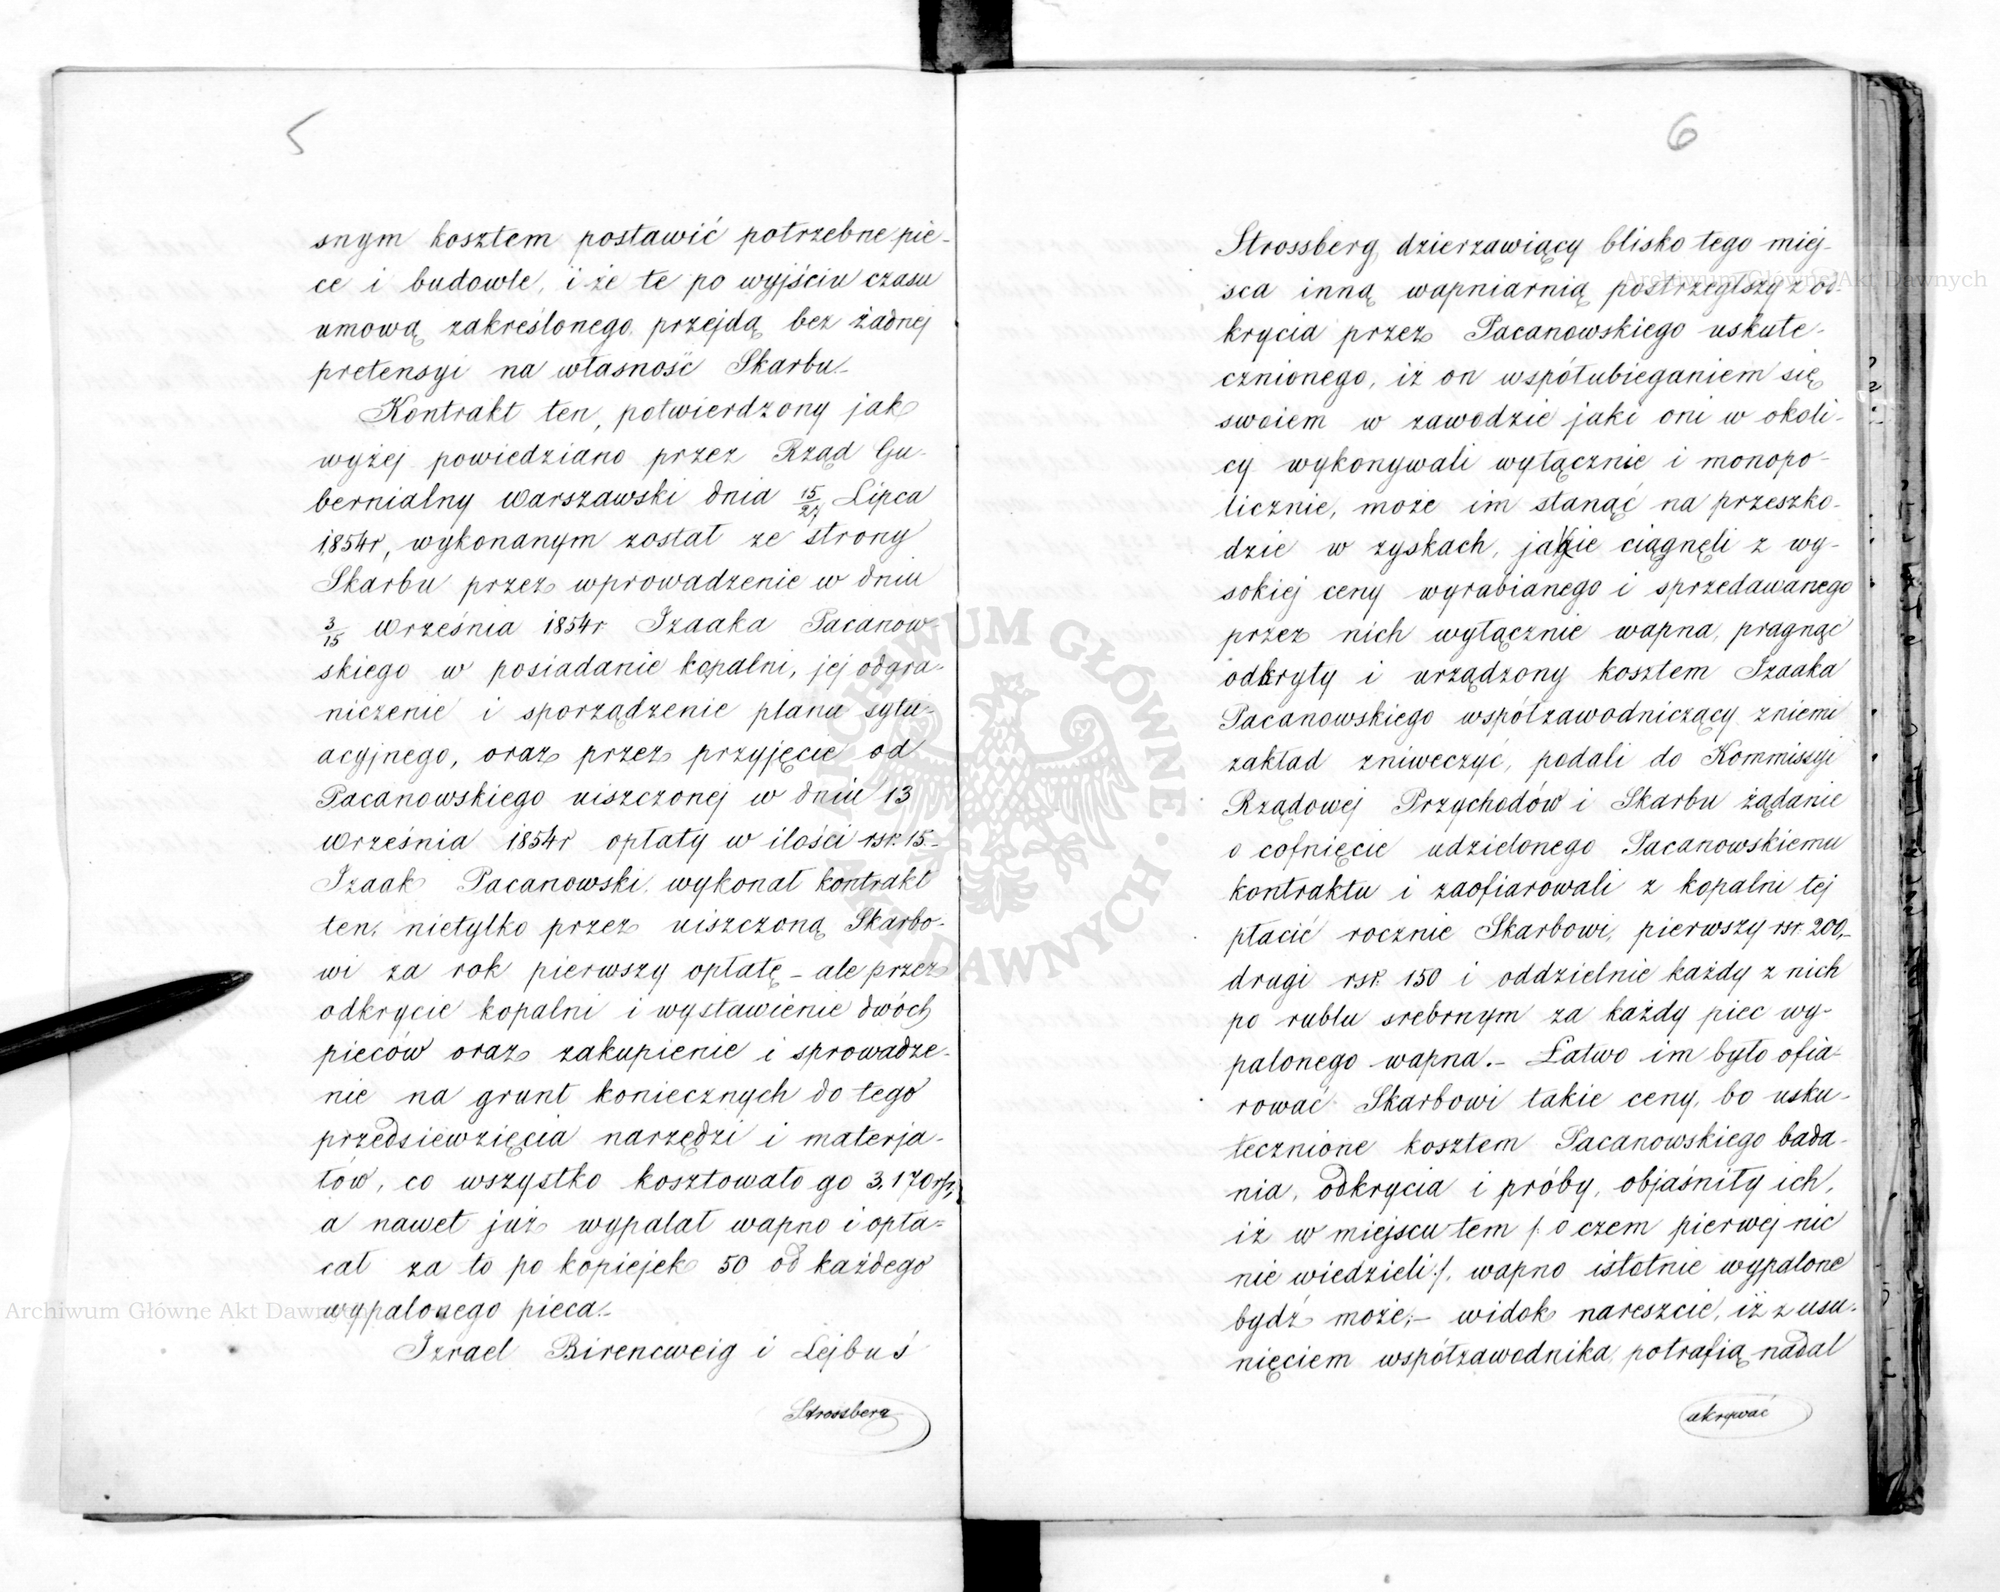 5
snym kosztem postawić potrzebne pie-
ce i budowle, i że te po wyjściu czasu
umową zakreślonego przejdą bez żadnej
pretensyi na własność Skarbu.
Kontrakt ten, potwierdzony jak
wyżej powiedziano przez Rząd Gu-
bernialny Warszawski dnia 15/27 Lipca
1854r, wykonanym został ze strony
Skarbu przez wprowadzenie w dniu
3/15 Września 1854r Izaaka Pacanow-
skiego w posiadanie kopalni, jej odgra-
niczenie i sporządzenie planu sytu-
acyjnego, oraz przez przyjęcie od
Pacanowskiego uiszczonej w dniu 13
Września 1854r opłaty w ilości rsr. 15.-
Izaak Pacanowski wykonał kontrakt
ten, nietylko przez uiszczoną Skarbo-
wi za rok pierwszy opłatę - ale przez
odkrycie kopalni i wystawienie dwóch
pieców oraz zakupienie i sprowadze-
nie na grunt koniecznych do tego
przedsiewzięcia narzędzi i materja-
łów, co wszystko kosztowało go 3,170 rsr,
a nawet już wypalał wapno i opła-
cał za to po kopiejek 50 od każdego
wypalonego pieca.-
Izrael Birencweig i Lejbuś
Strossberg
6
Strossberg dzierzawiący blisko tego miej-
sca inną wapniarnią postrzegłszy z od-
krycia przez Pacanowskiego uskute-
cznionego, iż on współubieganiem się
swoiem w zawodzie jaki oni w okoli-
cy wykonywali wyłącznie i monopo-
licznie, może im stanąć na przeszko-
dzie w zyskach, jakie ciągnęli z wy-
sokiej ceny wyrabianego i sprzedawanego
przez nich wyłącznie wapna, pragnąc
odkryty i urządzony kosztem Izaaka
Pacanowskiego współzawodniczący z niemi
zakład zniweczyć, podali do Kommissyi
Rządowej Przychodów i Skarbu żądanie
o cofnięcie udzielonego Pacanowskiemu
kontraktu i zaofiarowali z kopalni tej
płacić rocznie Skarbowi, pierwszy rsr. 200,-
drugi rsr. 150 i oddzielnie każdy z nich
po rublu srebrnym za każdy piec wy-
palonego wapna.- Łatwo im było ofia-
rować Skarbowi takie ceny, bo usku-
tecznione kosztem Pacanowskiego bada-
nia, odkrycia i próby, objaśniły ich,
iż w miejscu tem /: o czem pierwej nic
nie wiedzieli :/, wapno istotnie wypalone
bydź może;- widok nareszcie, iż z usu-
nięciem współzawodnika potrafią nadal
ukrywać
Archiwum Główne Akt Dawnych
Archiwum Główne Akt Dawnych
ARCHIWUM GŁÓWNE AKT DAWNYCH